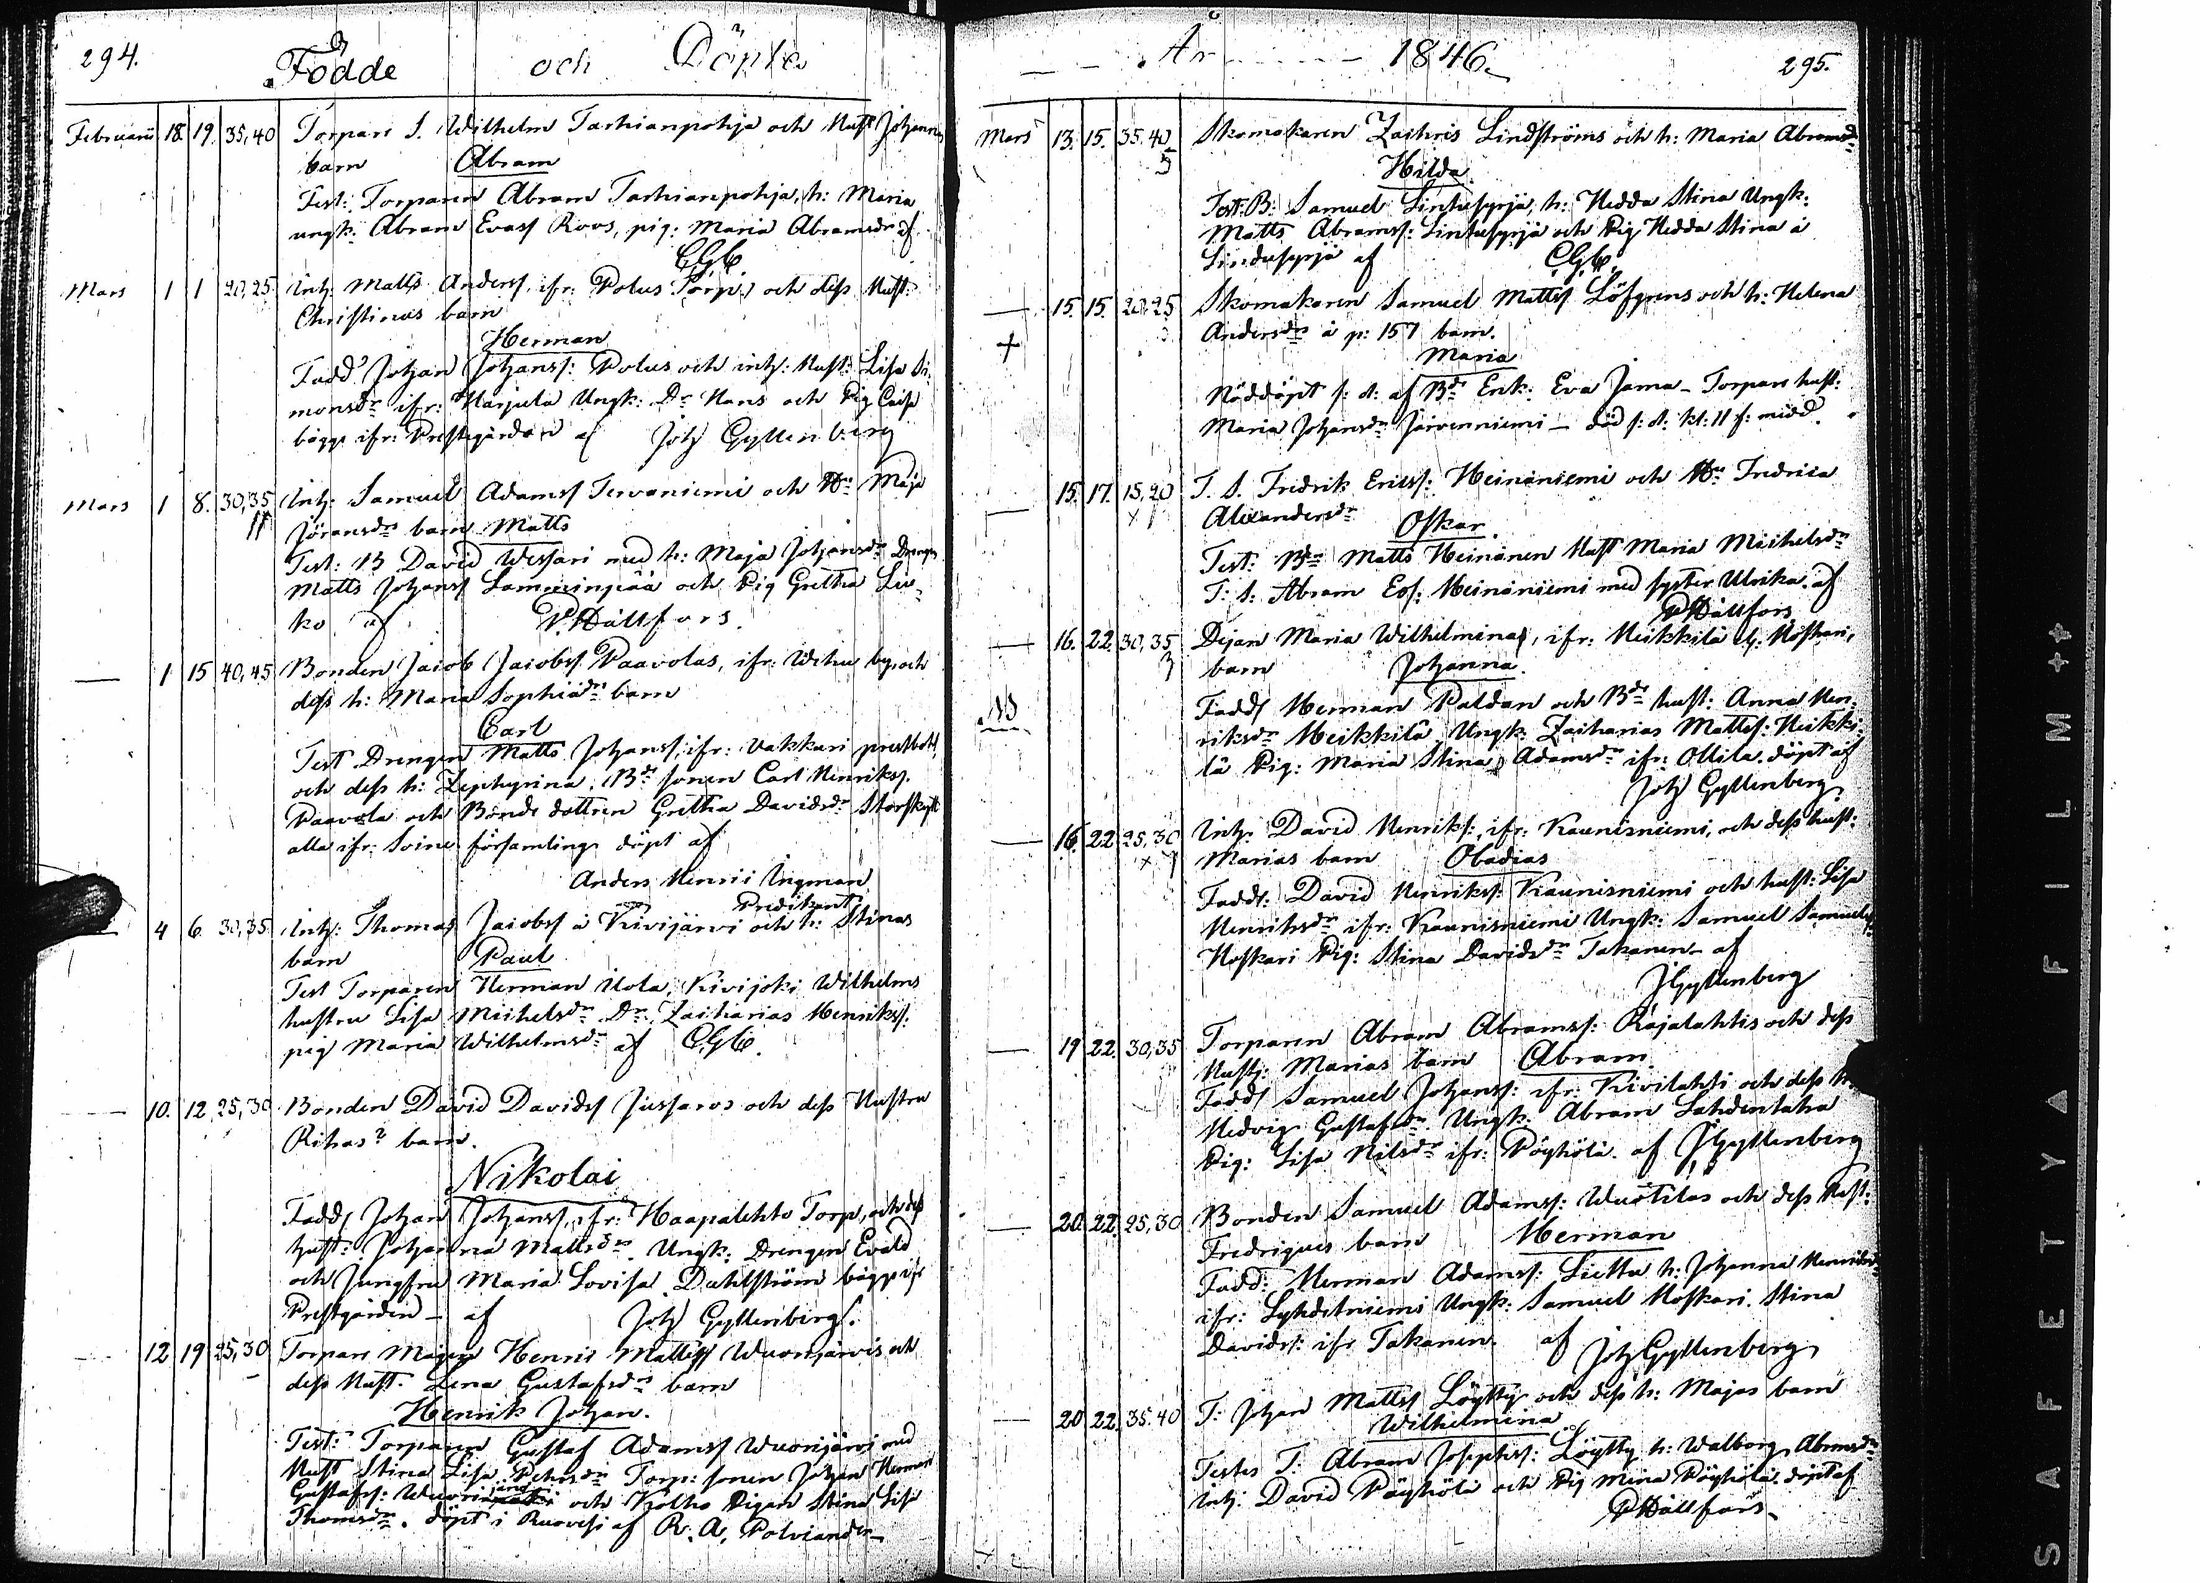 294.
Födde och Döpte
Februarii 18. 19. 35,40 Torpare S. Wilhelm Tarhianpohja och Hust Johannas
barn Abram
Test: Torparen Abram Tarhianpohja, h: Maria
ungk: Abram Evass Roos, pig: Maria Abramsdr af
CGC
Mars 1 1 20,25 Inh. Matts Anderss ifr: Polus Torp, och dess Hust:
Christinas barn
Herman
Fadd Johan Johanss: Polus och inh: Hust: Lisa Si-
monsdr ifr: Harjula Ungk: Dr Hans och Pig Caisa
bägge ifr: Prestegården af Joh Gyllenberg
Mars 1 8. 30,35 Inh: Samuel Adamss Tervaniemi och Hu Maja
Jöransdr barn Matts
Test: B David Wessari med h: Maja Johansdr Drengen
Matts Johanss Lamminpää och Pig Gretha Liu-
ko af P. Hällfors.
— 1 15 40,45 Bonden Jacob Jacobss Paavolas, ifr: Wehu by, och
dess h: Maria Sophiædr barn
Carl
Test Drengen Matts Johanss ifr: Vakkuri prestbol,
och dess h: Zephyrina, Bde sonen Carl Henrikss.
Paavola och Bonde dottren Gretha Davidsdr Storskytt
alla ifr: Soine församling döpt af
Anders Henric Ingman
Predikant
4 6 30,35 Inh: Thomas Jacobss å Kivijärvi och h: Stinas
barn Paul
Test Torparen Herman Uota, Kivijoki Wilhelms
hustru Lisa Michelsdr Dr: Zacharias Henrikss:
pig Maria Wilhelmsdr af CGC.
— 10. 12. 25,30 Bonden David Davidss Jussaros och dess Hustru
Rikas? barn.
Nikolai
Fadd, Johan Johanss, ifr: Haapalehto Torp, och dess
hust: Johanna Mattsdr Ungk: Drengen Evald
och Jungfru Maria Lovisa Dahlström bägge ifr
Prestgården — af Joh Gyllenberg.
— 12 19 25,30 Torpare Mågen Henric Mattss Wuorijärvis och
dess Hust. Lena Gustafsdr barn
Henrik Johan.
Test: Torparen Gustaf Adamss Wuorijärvi med
Hust Stina Lisa Petersdr Torp: sonen Johan Herman
Gustafss: och Kolho Pigan Stina Lisa
Thomsdr. döpt i Ruovesi af R. A. Polviander
— — År — — 1846. 295.
Mars 13. 15. 35.40 Skomakaren Zachris Lindströms och h: Maria Abramsdr
Hilda
Test: B: Samuel Lintusyrjä, h: Hedda Stina Ungk:
Matts Abramss: Lintusyrjä och Pig Hedda Stina å
Lindusyrjä af CGC.
— 15 15. 20,25 Skomakaren Samuel Mattss Löfgrens och h: Helena
Andersdr å p: 157 barn.
Maria
Nöddöpt s: d: af Bde Enk: Eva Jama — Torpare hust:
Maria Johansdr Järvenniemi — död s: d: kl: 11 f: midd.
— 15. 17. 15,20 T. S. Fredrik Ericss: Heinäniemi och Hu Fredrica
Alexandersdr Oskar.
Test: Bn Matts Heinänen Hust Maria Michelsdr
T: S: Abram Es: Heinäniemi med syster Ulrika. af
PHällfors
— 16. 22. 30,35 Pejan Maria Wilhelmina, ifr: Heikkilä el: Koskari,
barn Johanna.
Fadd, Herman Paldan och Bde hust: Anna Hen-
riksdr Heikkilä Ungk: Zacharias Mattss: Heikki-
lä Pig: Maria Stina Adamsdr ifr: Ollila. döpt af
Joh Gyllenberg.
— 16. 22 25,30 Inh: David Henrikss, ifr: Kaunisniemi, och dess hust:
Marias barn Obadias
Fadd: David Henrikss: Kaunisniemi och hust: Lisa
Henriksdr ifr: Kaunisniemi Ungk: Samuel Samuelss
Koskari Pig: Stina Davidsdr Takanen. af
JGyllenberg
— 19 22. 30,35 Torparen Abram Abramss: Rajalahtis och dess
Hustr: Marias barn Abram
Fadd, Samuel Johanss: ifr: Kivilahti och dess
Hedvig Gustafsdr. Ungk: Abram Lahdentaka
Pig: Lisa Nilsdr ifr: Pöyhölä. af JGyllenberg
— 20. 22. 25,30 Bonden Samuel Adamss: Wuotilas och dess Hust:
Fredriques barn Herman
Fadd: Herman Adamss: Liettu h: Johanna Henriksdr
ifr: Lehdetniemi Ungk: Samuel Koskari, Stina
Davidss: ifr Takanen. af Joh Gyllenberg
— 20 22. 35.40 T: Johan Mattss Löytty och dess h: Majas barn
Wilhelmina
Testes T: Abram Josephss: Löytty h: Walborg Abramsdr
Inh: David Pöyhölä och Pig Mina Pöyhölä. döpt af
PHällfors.
SAFETY FILM